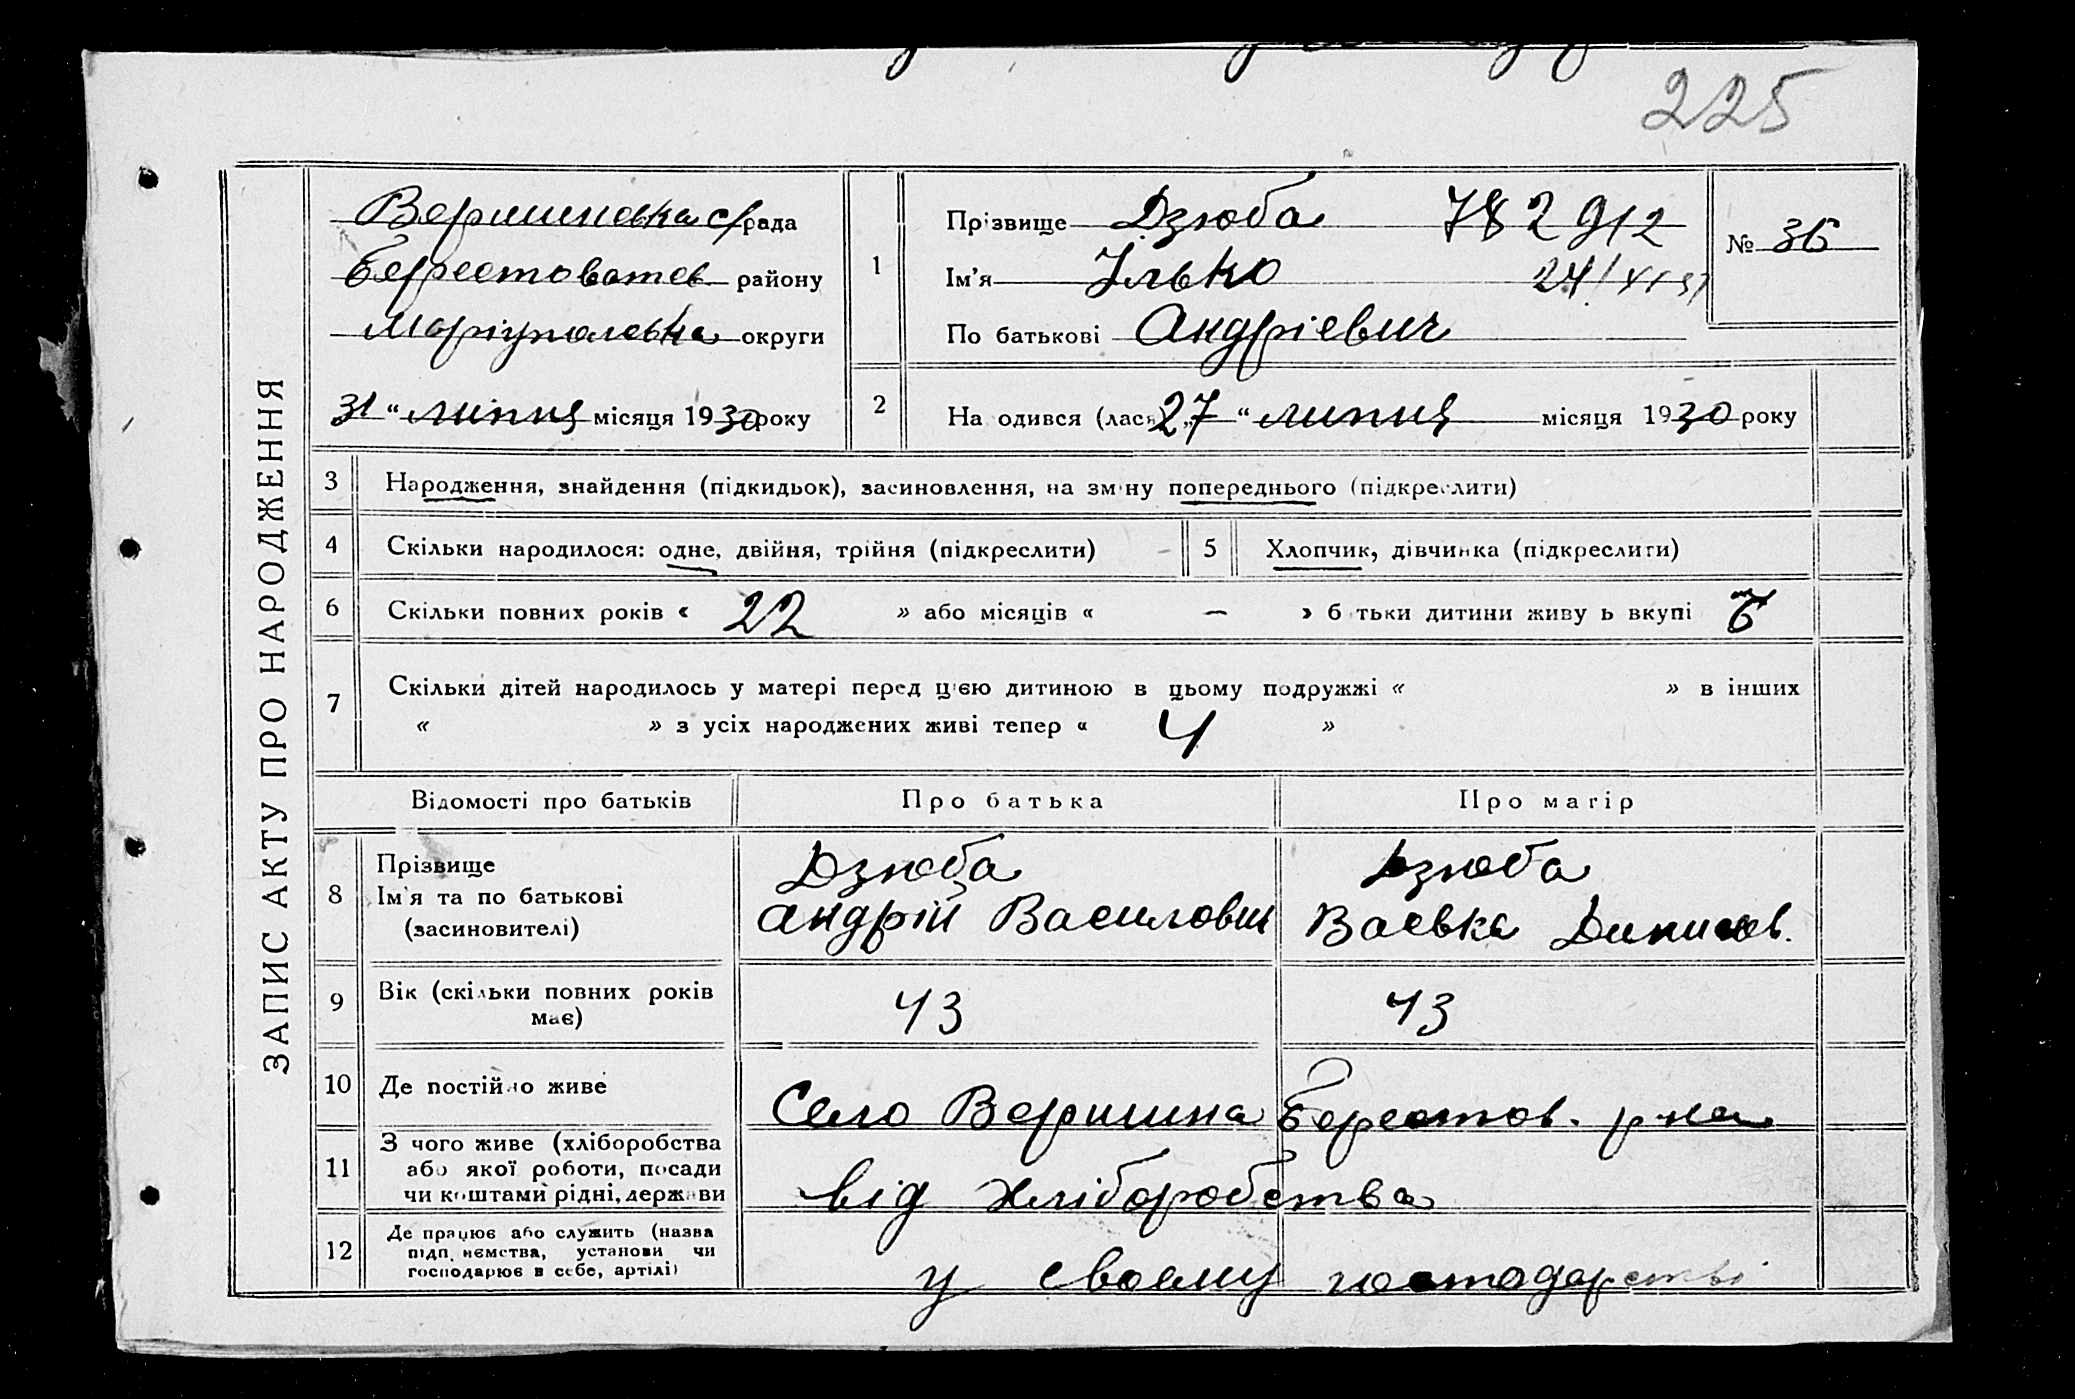 225
ЗАПИС АКТУ ПРО НАРОДЖЕННЯ
Вершинська с/рада
Берестоватов. району
Маріупольська округи
31 “ липня місяця 1930 року
1
Прізвище Дзюба 782912
Ім’я Ілько 24/XI 51
По батькові Андріевич
№ 36
2
На одився (лася) „27“ липня місяця 1930 року
3 Народження, знайдення (підкидьок), засиновлення, на зм ну попереднього (підкреслити)
4 Скільки народилося: одне, двійня, трійня (підкреслити)
5 Хлопчик, дівчинка (підкреслити)
6 Скільки повних років « 22 » або місяців « — » б тьки дитини живу ь вкупі
7 Скільки дітей народилось у матері перед цією дитиною в цьому подружжі « » в інших
« » з усіх народжених живі тепер « 4 »
Відомості про батьків Про батька Про матір
8 Прізвище
Ім’я та по батькові
(засиновителі)
Дзюба
Андрій Василович
Дзюба
Васька
9 Вік (скільки повних років
має)
43 43
10 Де постійно живе
Село Вершина Берестов. р-на
11 З чого живе (хліборобства
або якої роботи, посади
чи коштами рідні, держави
від хліборобства
12 Де працює або служить (назва
підп. нємства, установи чи
господарює в себе, артілі)
у своему господарстві